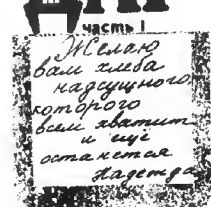 часть I
Желаю
вам хлеба
насущного
которого
всем хватит
и ещё
останется
Надежда